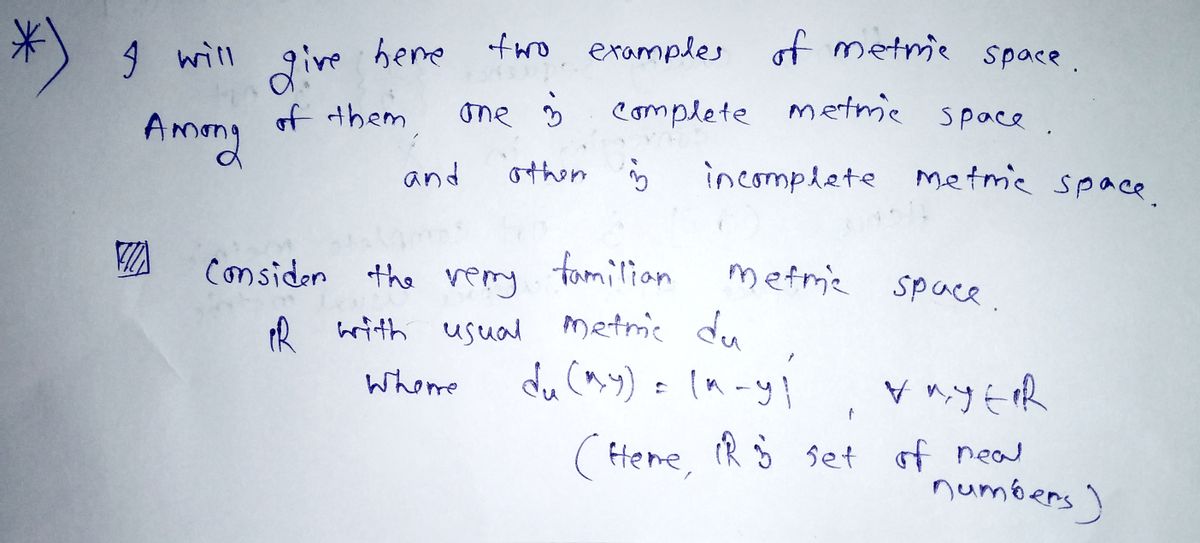 *) I will give here two examples of metric space.
Among of them, one is complete metric space.
and other is incomplete metric space.
Consider the very familiar metric space.
ℝ with usual metric du,
where du(x,y) = |x-y|, ∀ x,y ∈ ℝ
(Here, ℝ is set of real
numbers)